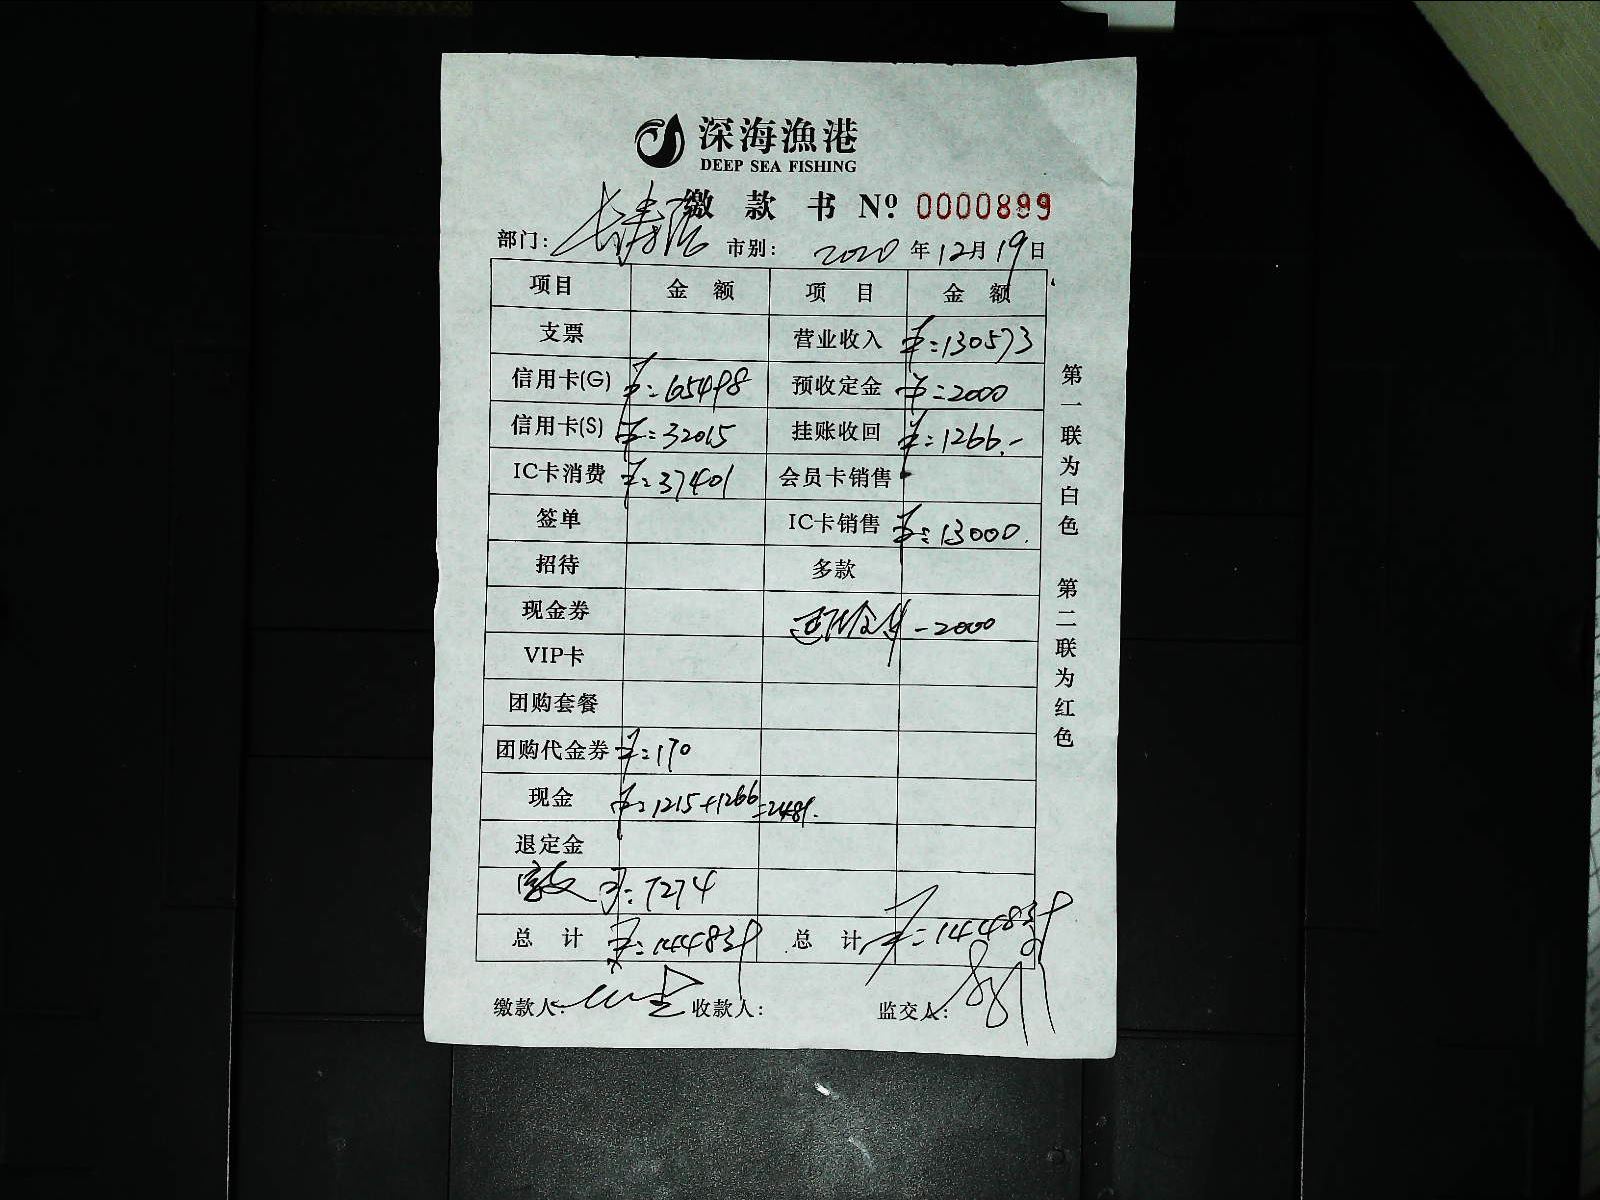 深海漁港
DEEP SEA FISHING
缴款书 Nº 0000899
部门: 长寿店 市别: 2020年12月19日
项目 金额 项目 金额
支票 营业收入 ¥:130573
信用卡(G) ¥:65498 预收定金 ¥:2000
信用卡(S) ¥:32015 挂账收回 ¥:1266.-
IC卡消费 ¥:37401 会员卡销售
签单 IC卡销售 ¥:13000.
招待 多款
现金券 -2000
VIP卡
团购套餐
团购代金券 ¥:170
现金 ¥:1215+1266=2481.
退定金
¥:7274
总计 ¥:144839 总计 ¥:144839
缴款人: 收款人: 监交人:
第一联为白色 第二联为红色